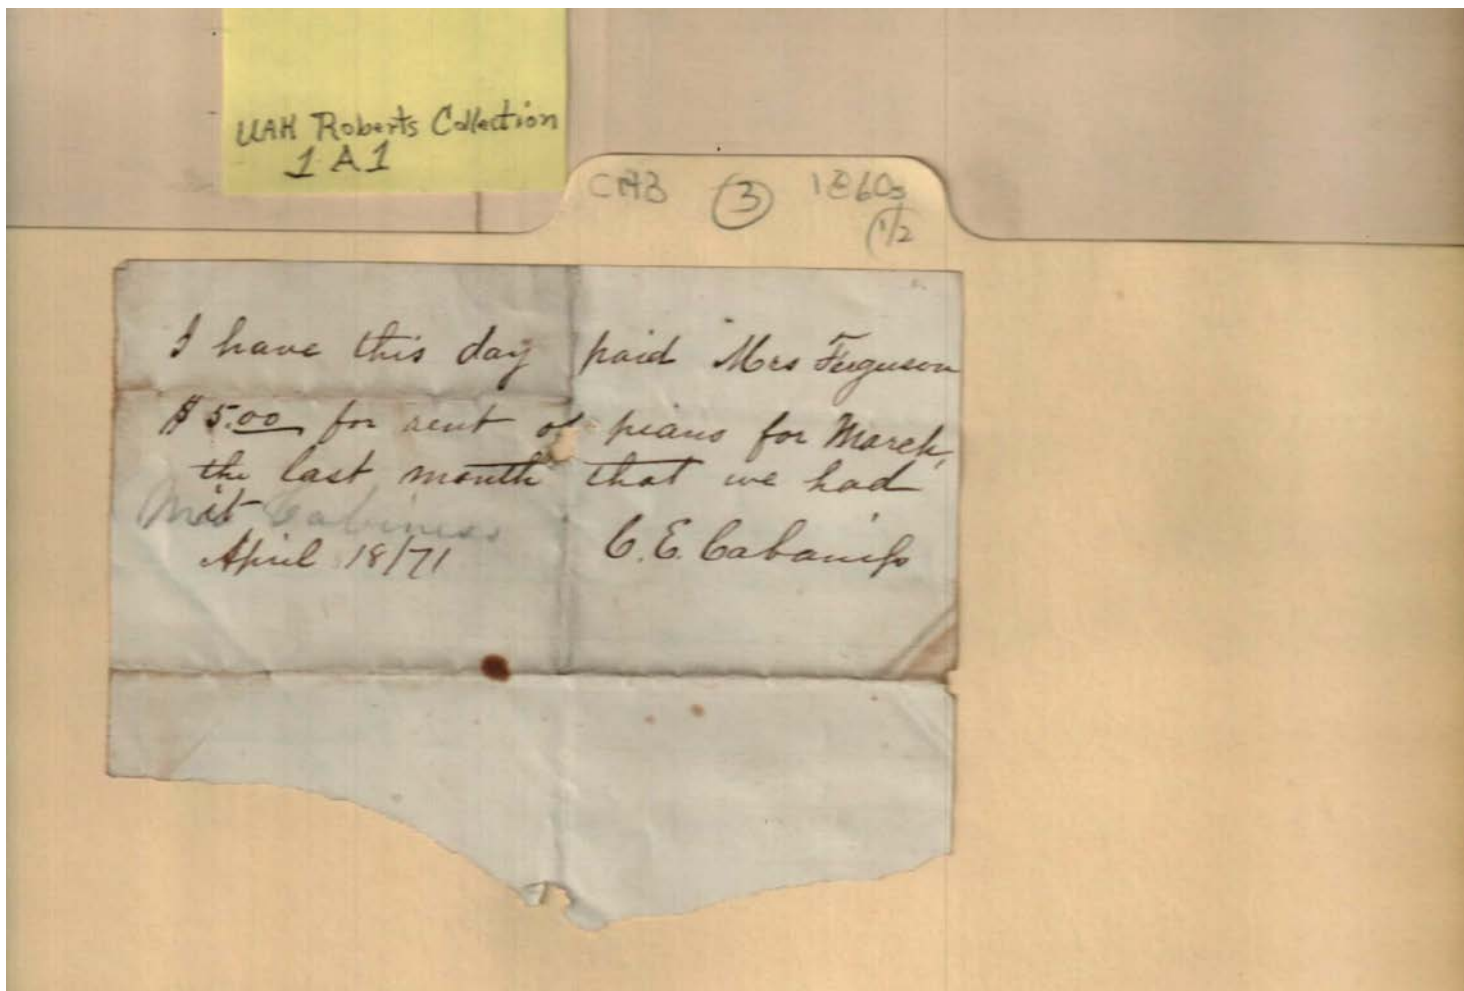 UAH Roberts Collection
1 A 1
CAB ③ 1860s
1/2
I have this day paid Mrs Ferguson
$5.00 for rent of piano for March,
the last month that we had
it
Mrs Cabiness
April 18/71 C. E. Cabaniss